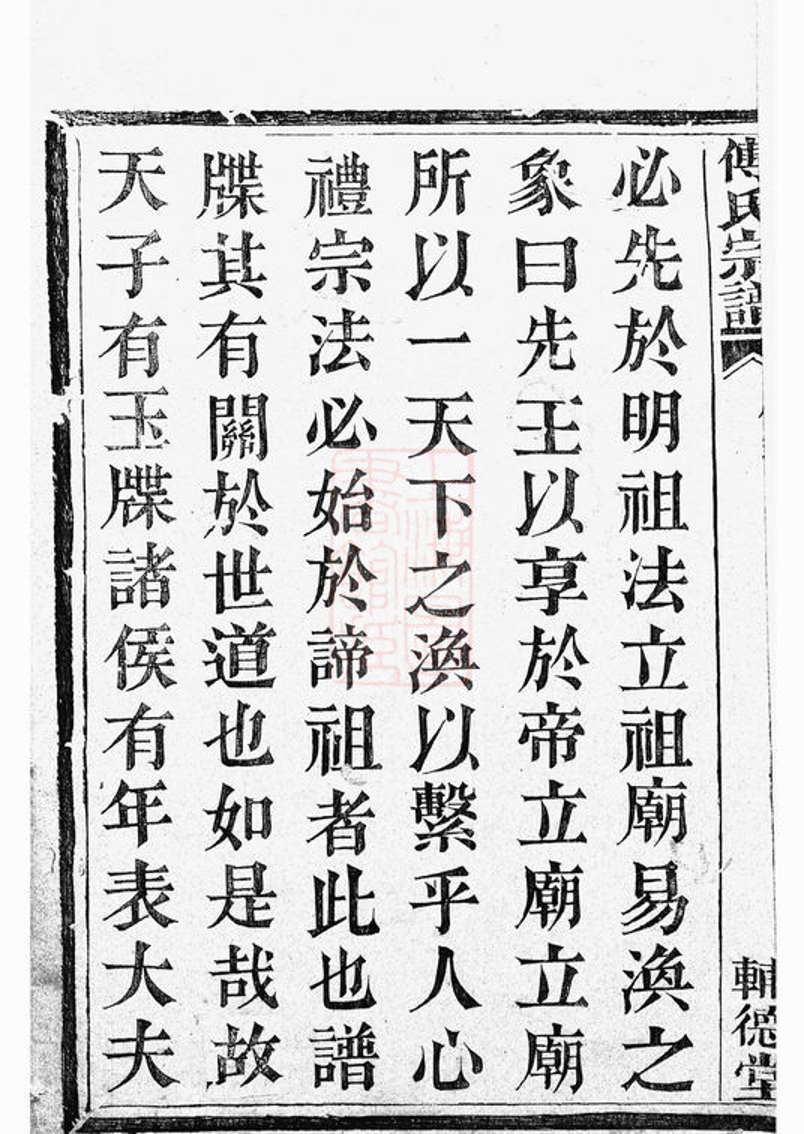 傅氏宗譜
輔德堂
必先於明祖法立祖廟易渙之
象曰先王以享於帝立廟立廟
所以一天下之渙以繫乎人心
禮宗法必始於諦祖者此也譜
牒其有關於世道也如是哉故
天子有玉牒諸侯有年表大夫